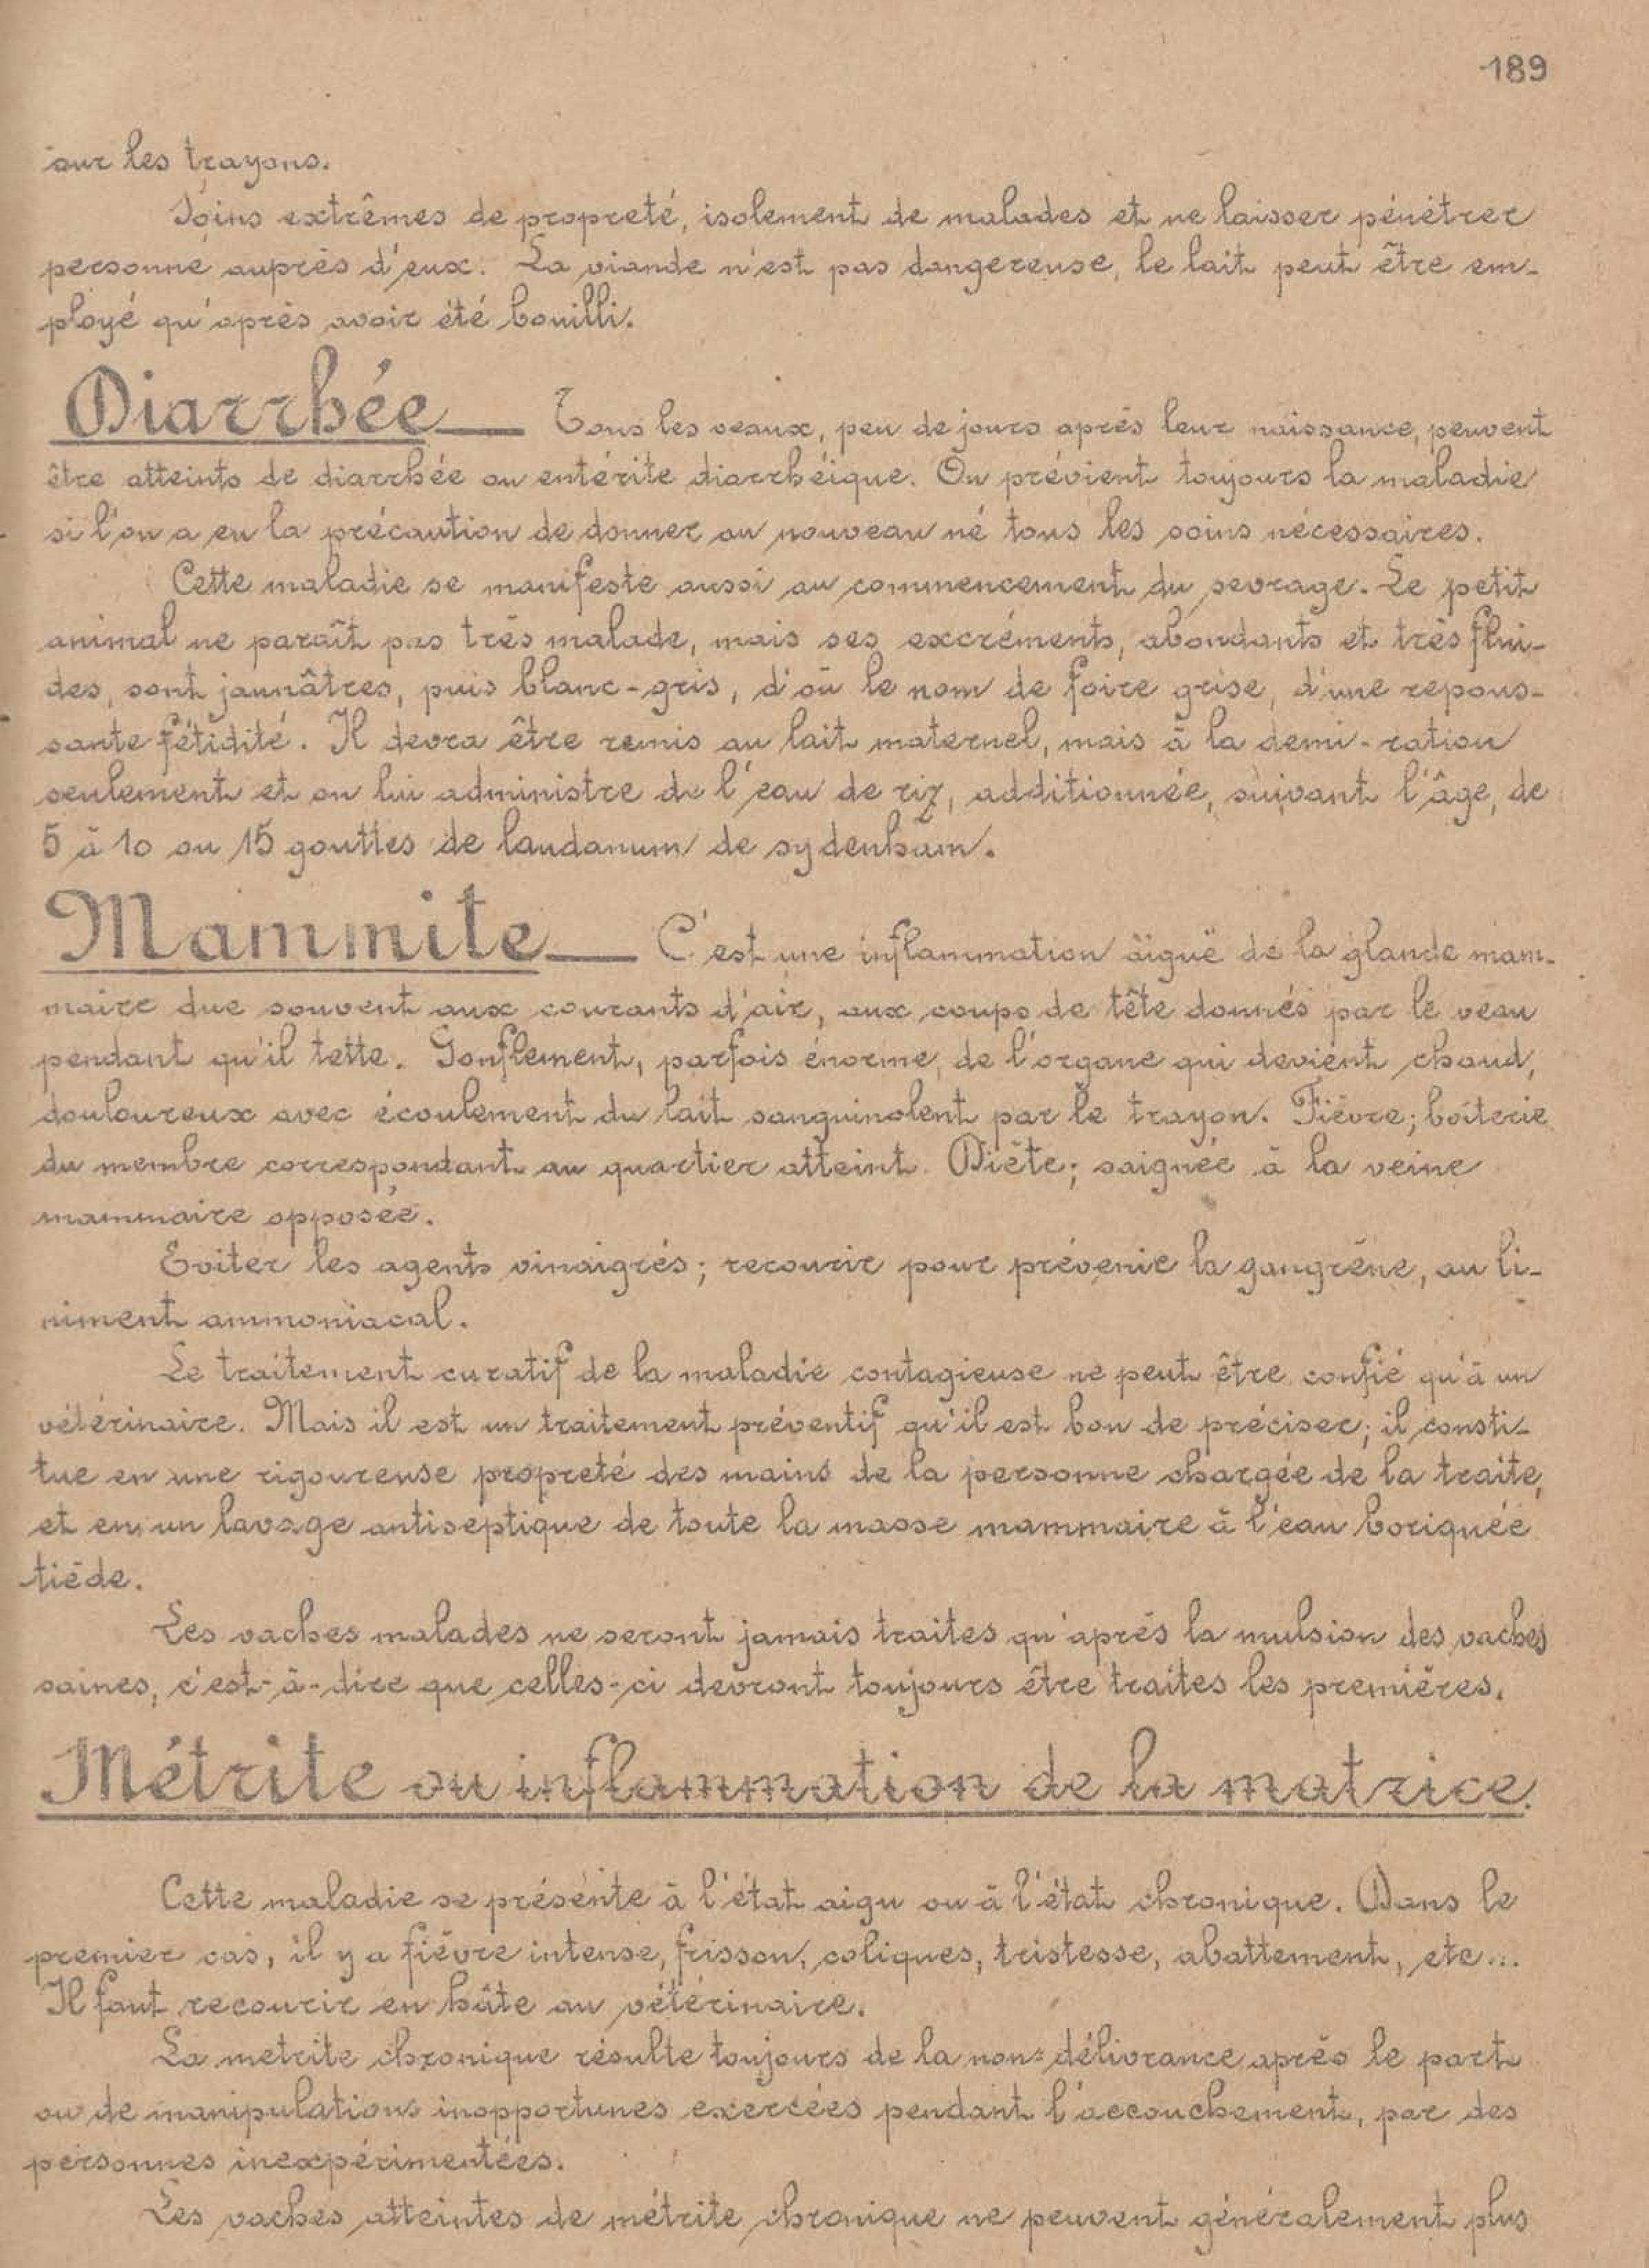 189
sur les trayons.
Soins extrêmes de propreté, isolement de malades et ne laisser pénétrer
personne auprès d'eux. La viande n'est pas dangereuse, le lait peut être em-
ployé qu'après avoir été bouilli.
Diarrhée — Tous les veaux, peu de jours après leur naissance, peuvent
être atteints de diarrhée ou entérite diarrhéique. On prévient toujours la maladie
si l'on a eu la précaution de donner au nouveau né tous les soins nécessaires.
Cette maladie se manifeste aussi au commencement du sevrage. Le petit
animal ne paraît pas très malade, mais ses excréments, abondants et très flui-
des, sont jaunâtres, puis blanc-gris, d'où le nom de foire grise, d'une repous-
sante fétidité. Il devra être remis au lait maternel, mais à la demi-ration
seulement et on lui administre de l'eau de riz, additionnée, suivant l'âge, de
5 à 10 ou 15 gouttes de laudanum de sydenham.
Mammite — C'est une inflammation äiguë de la glande mam-
maire due souvent aux courants d'air, aux coups de tête donnés par le veau
pendant qu'il tette. Gonflement, parfois énorme, de l'organe qui devient chaud,
douloureux avec écoulement du lait sanguinolent par le trayon. Fièvre; boîterie
du membre correspondant au quartier atteint. Diète; saignée à la veine
mammaire opposée.
Eviter les agents vinaigrés; recourir pour prévenir la gangrène, au li-
niment ammoniacal.
Le traitement curatif de la maladie contagieuse ne peut être confié qu'à un
vétérinaire. Mais il est un traitement préventif qu'il est bon de préciser; il consti-
tue en une rigoureuse propreté des mains de la personne chargée de la traite,
et en un lavage antiseptique de toute la masse mammaire à l'eau boriquée
tiède.
Les vaches malades ne seront jamais traites qu'après la mulsion des vaches
saines, c'est-à-dire que celles-ci devront toujours être traites les premières.
Métrite ou inflammation de la matrice.
Cette maladie se présente à l'état aigu ou à l'état chronique. Dans le
premier cas, il y a fièvre intense, frisson, coliques, tristesse, abattement, etc...
Il faut recourir en hâte au vétérinaire.
La metrite chronique résulte toujours de la non-délivrance après le part
ou de manipulations inopportunes exercées pendant l'accouchement, par des
personnes inexpérimentées.
Les vaches atteintes de métrite chronique ne peuvent généralement plus